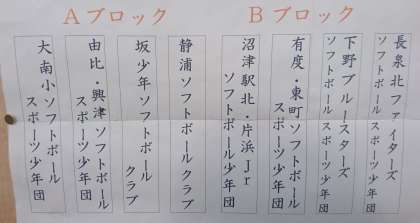 Aブロック
Bブロック
長泉北ファイターズ
ソフトボールスポーツ少年団
下野ブルースターズ
ソフトボールスポーツ少年団
有度・東町ソフトボール
スポーツ少年団
沼津駅北・片浜Jr
ソフトボール少年団
静浦ソフトボールクラブ
坂少年ソフトボール
クラブ
由比・興津ソフトボール
スポーツ少年団
大南小ソフトボール
スポーツ少年団